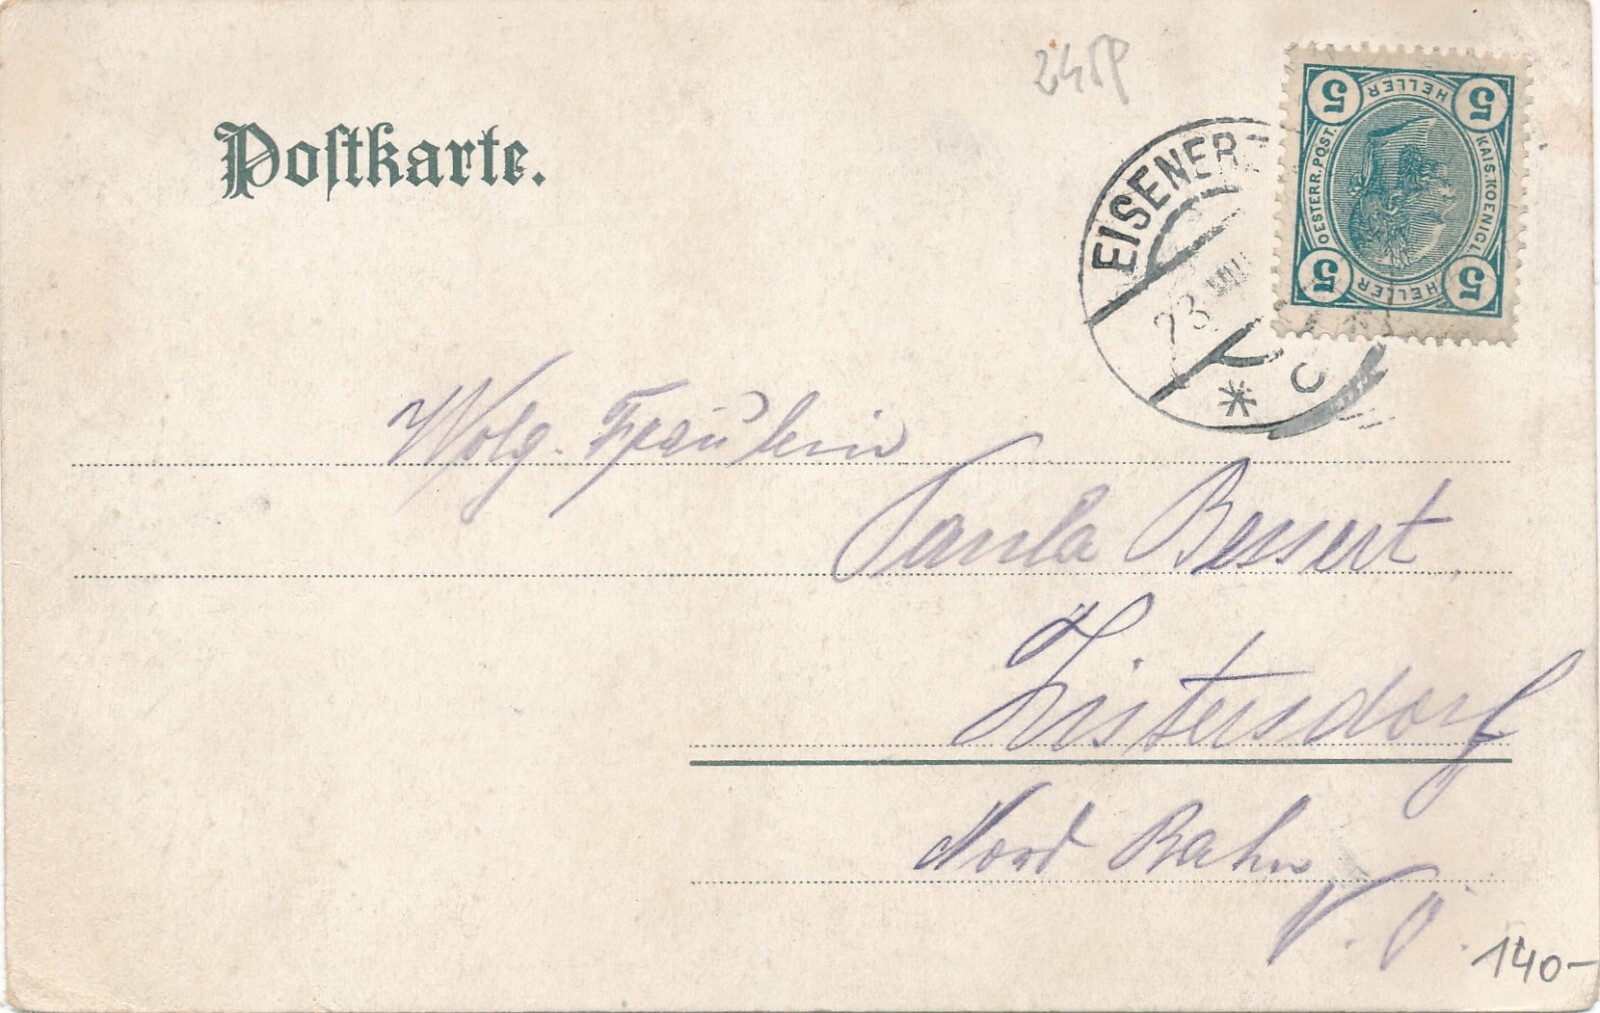 Postkarte.
EISENERZ
23
VIII
* c
5 HELLER 5
OESTERR. POST.
KAIS. KOENIGL
5 HELLER 5
Wolg. Fräulein
Paula Bessert.
Zistersdorf
Nord Bahn
N. Ö.
140-